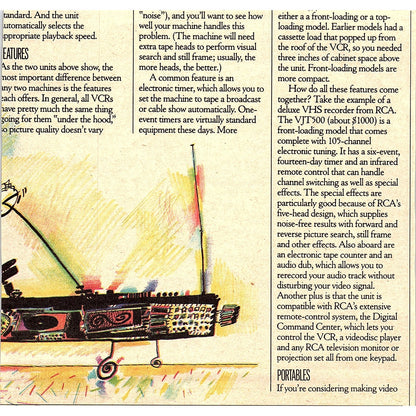 standard. And the unit
automatically selects the
appropriate playback speed.
FEATURES
As the two units above show, the
most important difference between
any two machines is the features
each offers. In general, all VCRs
have pretty much the same thing
going for them "under the hood,"
so picture quality doesn't vary
"noise"), and you'll want to see how
well your machine handles this
problem. (The machine will need
extra tape heads to perform visual
search and still frame; usually, the
more heads, the better.)
A common feature is an
electronic timer, which allows you to
set the machine to tape a broadcast
or cable show automatically. One-
event timers are virtually standard
equipment these days. More
either a a front-loading or a top-
loading model. Earlier models had a
cassette load that popped up from
the roof of the VCR, so you needed
three inches of cabinet space above
the unit. Front-loading models are
more compact.
How do all these features come
together? Take the example of a
deluxe VHS recorder from RCA.
The VJT500 (about $1000) is a
front-loading model that comes
complete with 105-channel
electronic tuning. It has a six-event,
fourteen-day timer and an infrared
remote control that can handle
channel switching as well as special
effects. The special effects are
particularly good because of RCA's
five-head design, which supplies
noise-free results with forward and
reverse picture search, still frame
and other effects. Also aboard are
an electronic tape counter and an
audio dub, which allows you to
rerecord your audio track without
disturbing your video signal.
Another plus is that the unit is
compatible with RCA's extensive
remote-control system, the Digital
Command Center, which lets you
control the VCR, a videodisc player
and any RCA television monitor or
projection set all from one keypad.
PORTABLES
If you're considering making video